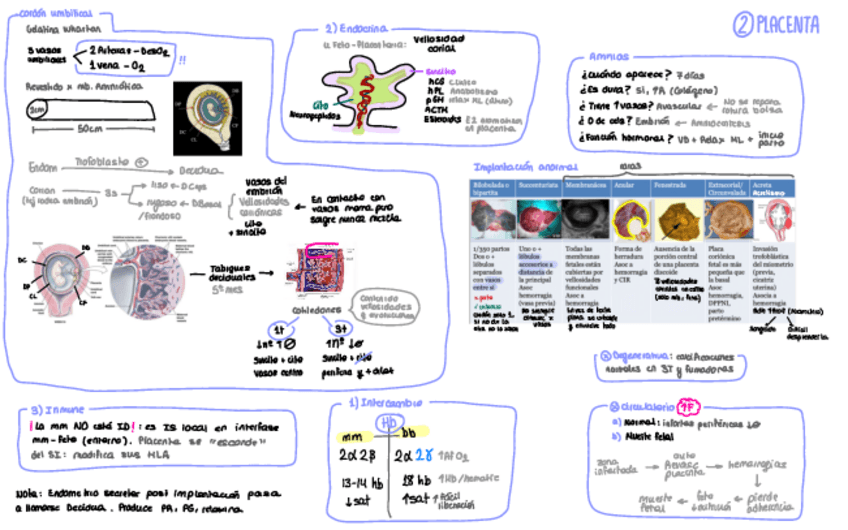 ② PLACENTA
cordón umbilical
Gelatina Wharton
3 vasos umbilicales
2 Arterias - DesO₂
1 vena - O₂
!!
Revestido x mb. Amniótica
2cm
50cm
Endom Trofoblasto ⊕ Decidua
Corion
(Hoja del embrión)
3s
liso → D Caps
rugoso → D Basal
/Frondoso
Vasos del embrión
Vellosidades coriónicas
Cito + sincitio
En contacto con vasos mama pero sangre nunca mezcla
DB
DC
DP
CL
CP
Tabiques deciduales
5º mes
Cotiledones
Conjunto vellosidades y evoluciones
1t
↓nº ↑∅
Sincitio + cito
Vasos centro
3t
↑nº ↓∅
Sincitio + cito
periferia y + dilat
2) Endocrina
U. Feto-Placentaria:
Vellosidad corial
Sincitio
hCG C.luteo
hPL Anabolismo
pGH
ACTH
Esteroides
Cito
Neuropéptidos
Amnios
¿Cuándo aparece? 7 días
¿Es dura? Sí, ↑A (Colágeno)
¿Tiene ↑vasos? Avascular ← No se repara rotura bolsa
¿O de cds? Embrión ← Amniocentesis
¿Función hormonal? VD + Relax ML + inicio parto
Implantación anormal
raras
Bilobulada o bipartita
Succenturiata
Membranácea
Anular
Fenestrada
Extracorial/ Circunvalada
Acreta
1/350 partos Dos o + lóbulos separados con vasos entre sí
Uno o + lóbulos accesorios a distancia de la principal Asoc hemorragia (vasa previa)
Todas las membranas fetales están cubiertas por vellosidades funcionales Asoc a hemorragia
Forma de herradura Asoc a hemorragia y CIR
Ausencia de la porción central de una placenta discoide
Placa coriónica fetal es más pequeña que la basal Asoc hemorragia, DPPNI, parto pretérmino
Invasión trofoblástica del miometrio (previa, cicatriz uterina) Asocia a hemorragia
Sangrado
Difícil desprenderla
⊗ Degenerativa: calcificaciones normales en 3T y fumadoras
3) Inmune
! La mm NO está ID! : es IS local en interfase
mm-feto (entorno). Placenta se "esconde"
del SI: modifica sus HLA
Nota: Endometrio secretor post implantación pasa
a llamarse Decidua. Produce PRL, PG, relaxina
1) Intercambio
Hb
mm
bb
2α 2β
2α 2γ ↑Af O₂
13-14 hb
18 hb ↑Hb/hematíe
↓sat
↑sat ↑fácil liberación
⊗ Circulatorio ↑F
a) Normal: infartos periféricos ↓∅
b) Muerte fetal
zona infartada → auto revasc placenta → hemorragias
pierde adherencia
feto
Muerte fetal